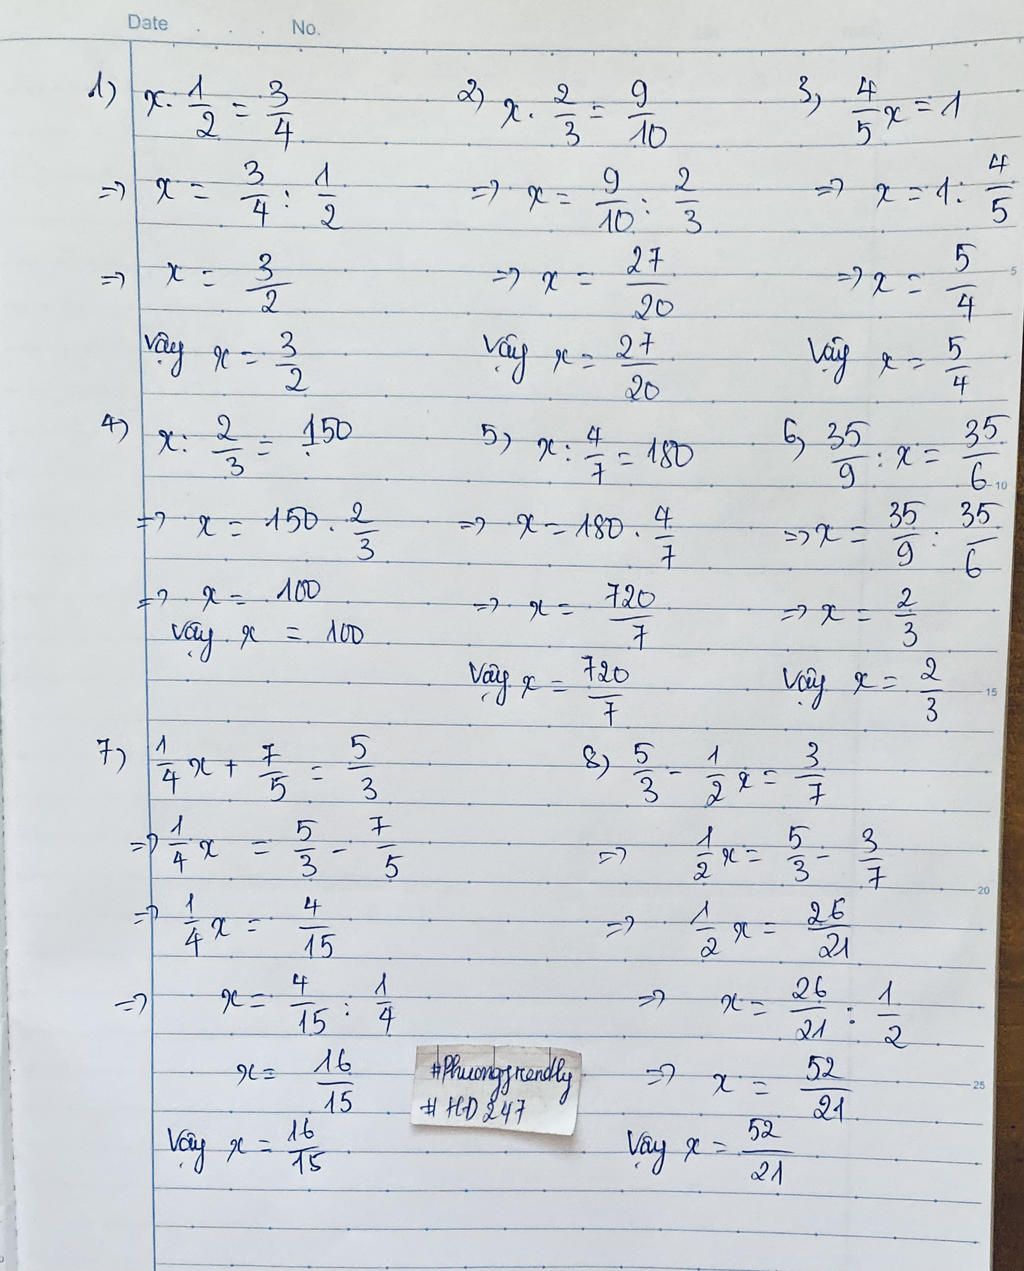 Date . . . No.
1) x. 1/2 = 3/4
=> x = 3/4 : 1/2
=> x = 3/2
Vậy x = 3/2
2) x. 2/3 = 9/10
=> x = 9/10 : 2/3
=> x = 27/20
Vậy x = 27/20
3, 4/5 x = 1
=> x = 1 : 4/5
=> x = 5/4
Vậy x = 5/4
4) x : 2/3 = 150
=> x = 150 . 2/3
=> x = 100
Vậy x = 100
5) x : 4/7 = 180
=> x = 180 . 4/7
=> x = 720/7
Vậy x = 720/7
6, 35/9 : x = 35/6
=> x = 35/9 : 35/6
=> x = 2/3
Vậy x = 2/3
7) 1/4 x + 7/5 = 5/3
=> 1/4 x = 5/3 - 7/5
=> 1/4 x = 4/15
=> x = 4/15 : 1/4
x = 16/15
Vậy x = 16/15
8) 5/3 - 1/2 x = 3/7
=> 1/2 x = 5/3 - 3/7
=> 1/2 x = 26/21
=> x = 26/21 : 1/2
=> x = 52/21
Vậy x = 52/21
#Phuongfrendly
#HD247
5
10
15
20
25